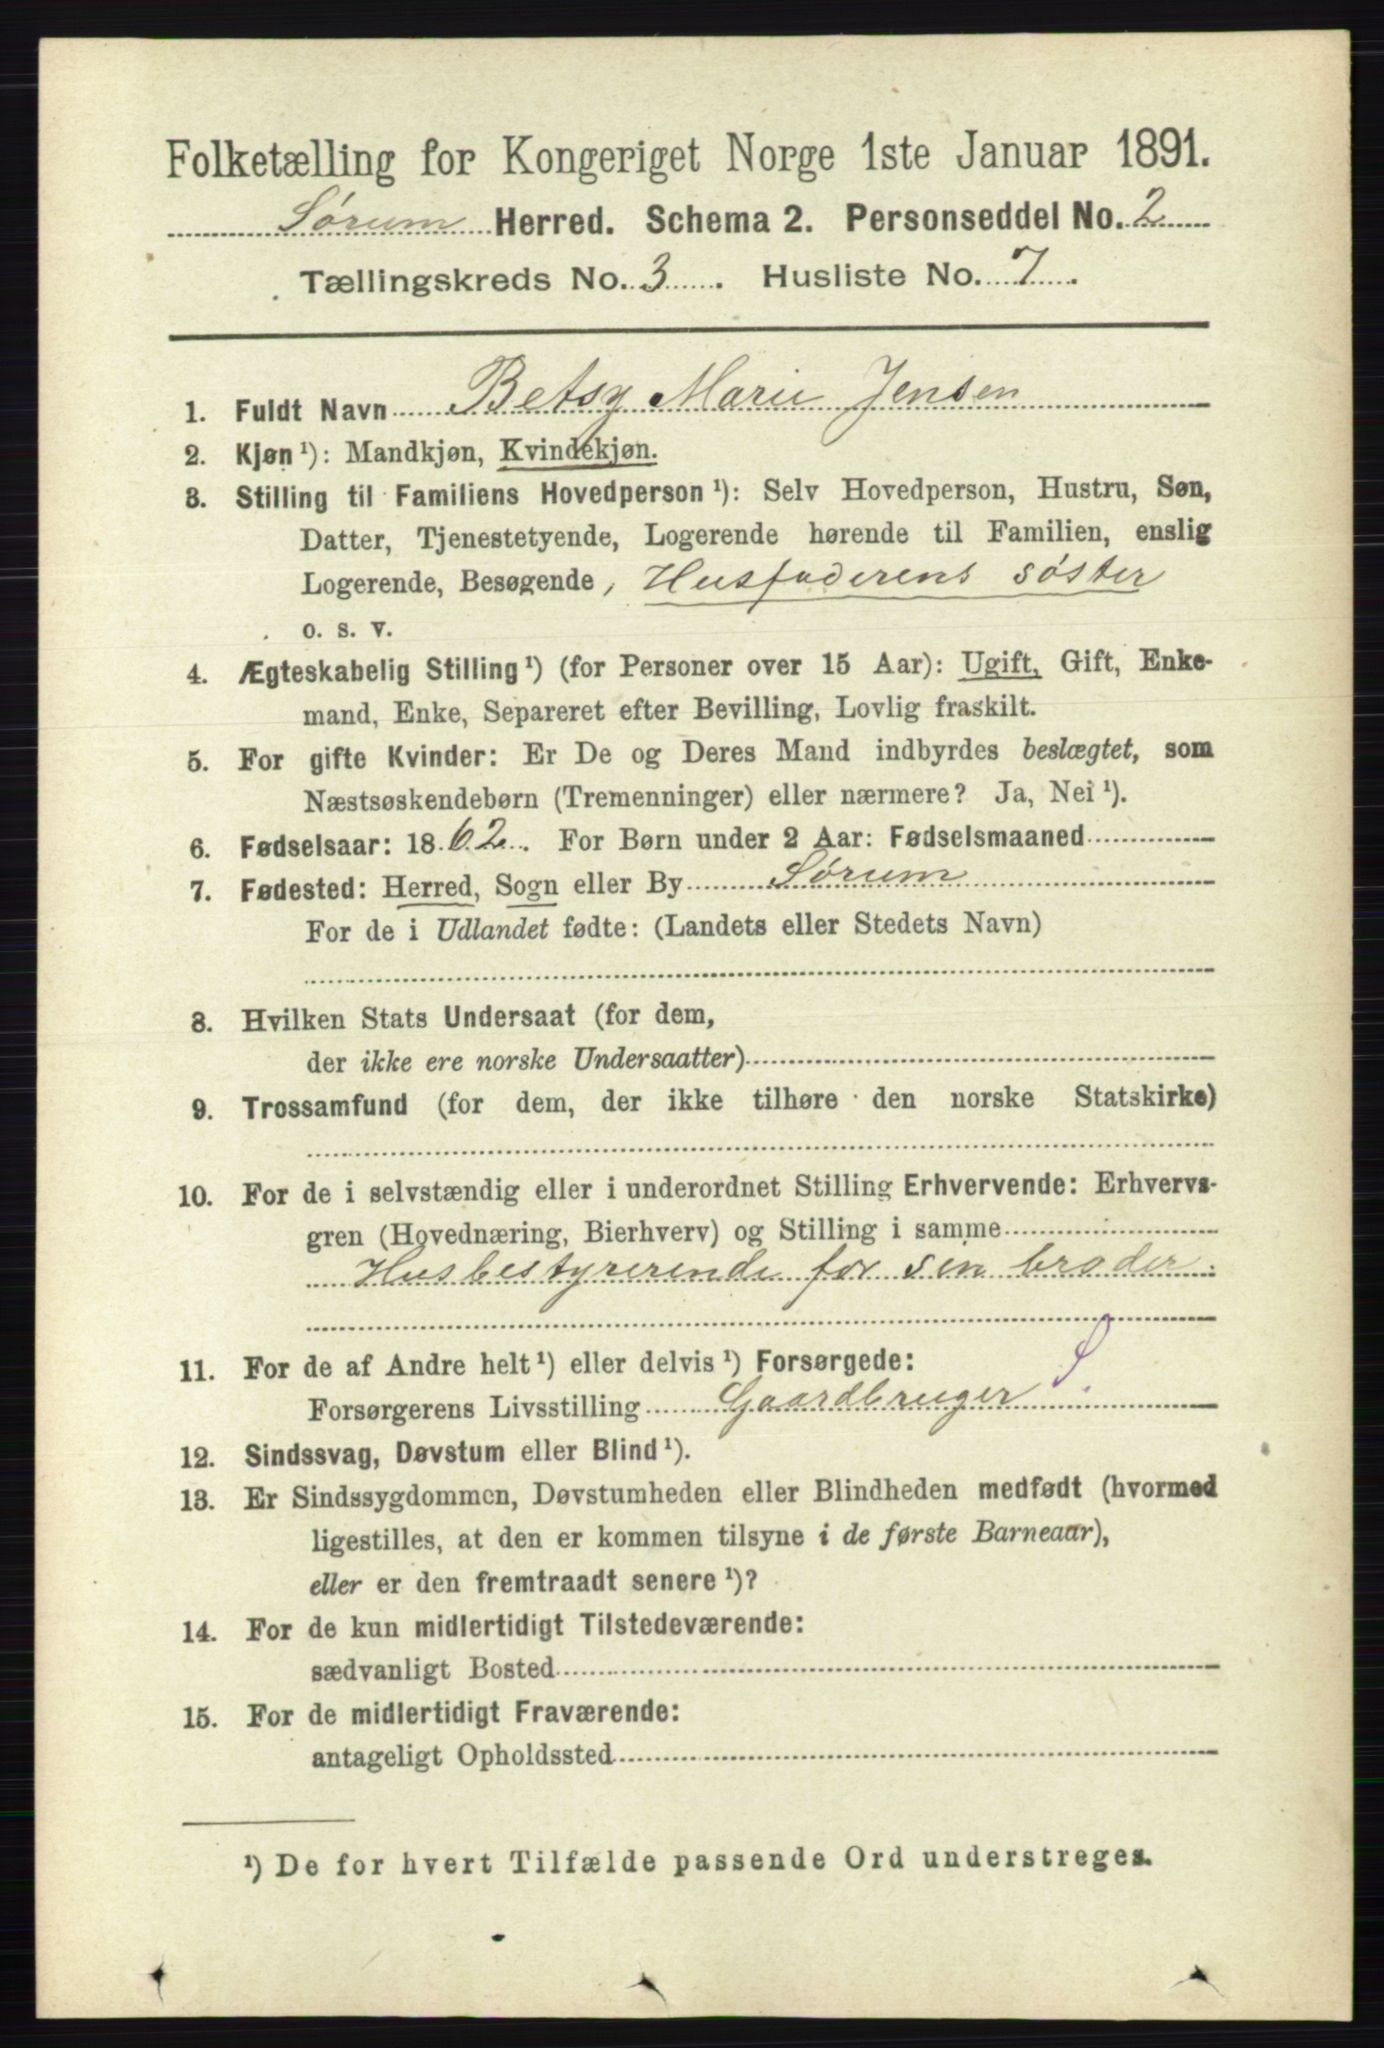 Folketælling for Kongeriget Norge 1ste Januar 1891.
Sørum Herred. Schema 2. Personseddel No. 2
Tællingskreds No. 3. Husliste No. 7.
1. Fuldt Navn Betsy Marie Jensen
2. Kjøn ¹): Mandkjøn, Kvindekjøn.
3. Stilling til Familiens Hovedperson ¹): Selv Hovedperson, Hustru, Søn,
Datter, Tjenestetyende, Logerende hørende til Familien, enslig
Logerende, Besøgende, Husfaderens søster
o. s. v.
4. Ægteskabelig Stilling ¹) (for Personer over 15 Aar): Ugift, Gift, Enke-
mand, Enke, Separeret efter Bevilling, Lovlig fraskilt.
5. For gifte Kvinder: Er De og Deres Mand indbyrdes beslægtet, som
Næstsøskendebørn (Tremenninger) eller nærmere? Ja, Nei ¹).
6. Fødselsaar: 1862. For Børn under 2 Aar: Fødselsmaaned
7. Fødested: Herred, Sogn eller By Sørum
For de i Udlandet fødte: (Landets eller Stedets Navn)
8. Hvilken Stats Undersaat (for dem,
der ikke ere norske Undersaatter)
9. Trossamfund (for dem, der ikke tilhøre den norske Statskirke)
10. For de i selvstændig eller i underordnet Stilling Erhvervende: Erhvervs-
gren (Hovednæring, Bierhverv) og Stilling i samme
Husbestyrerende for sin broder.
11. For de af Andre helt ¹) eller delvis ¹) Forsørgede:
Forsørgerens Livsstilling Gaardbruger
12. Sindssvag, Døvstum eller Blind ¹).
13. Er Sindssygdommen, Døvstumheden eller Blindheden medfødt (hvormed
ligestilles, at den er kommen tilsyne i de første Barneaar),
eller er den fremtraadt senere ¹)?
14. For de kun midlertidigt Tilstedeværende:
sædvanligt Bosted
15. For de midlertidigt Fraværende:
antageligt Opholdssted
¹) De for hvert Tilfælde passende Ord understreges.